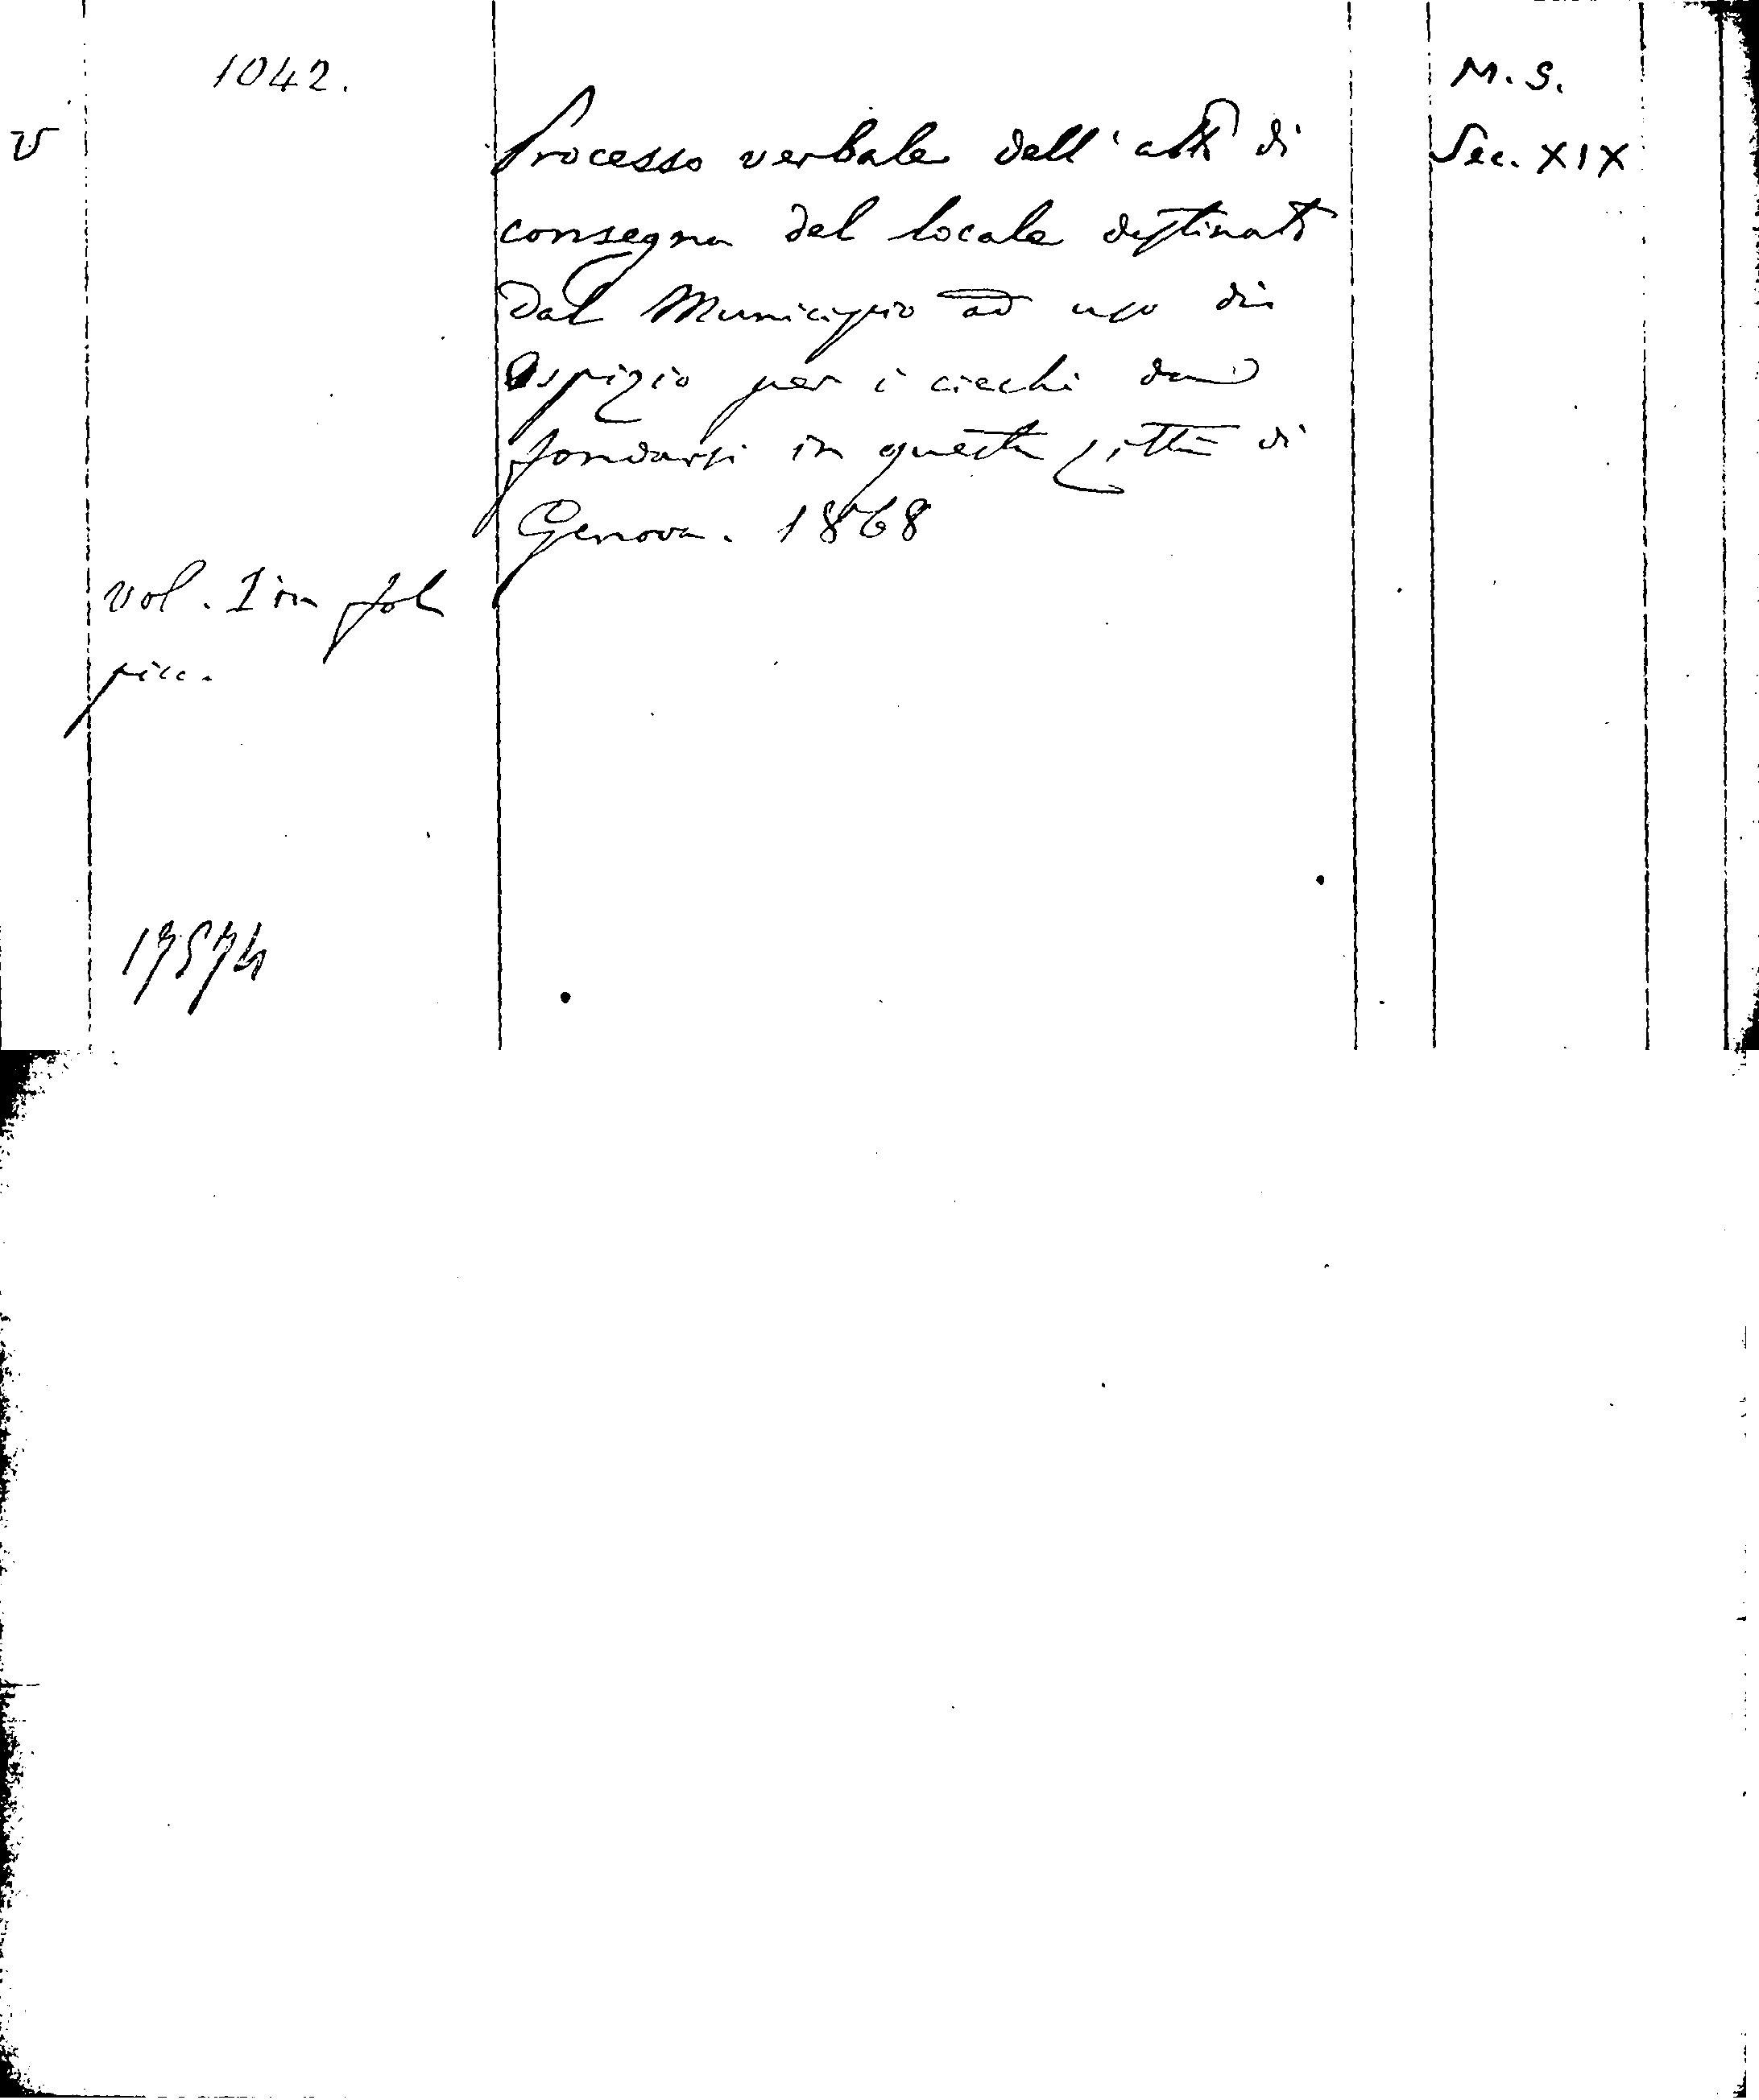 1042.
M. S.
V
Processo verbale dell'atto di
Sec. XIX
consegna del locale destinato
dal Municipio ad uso di
Ospizio per i ciechi da
fondarsi in questa Città di
Genova. 1868
vol. 1 in fol
picc.
17574